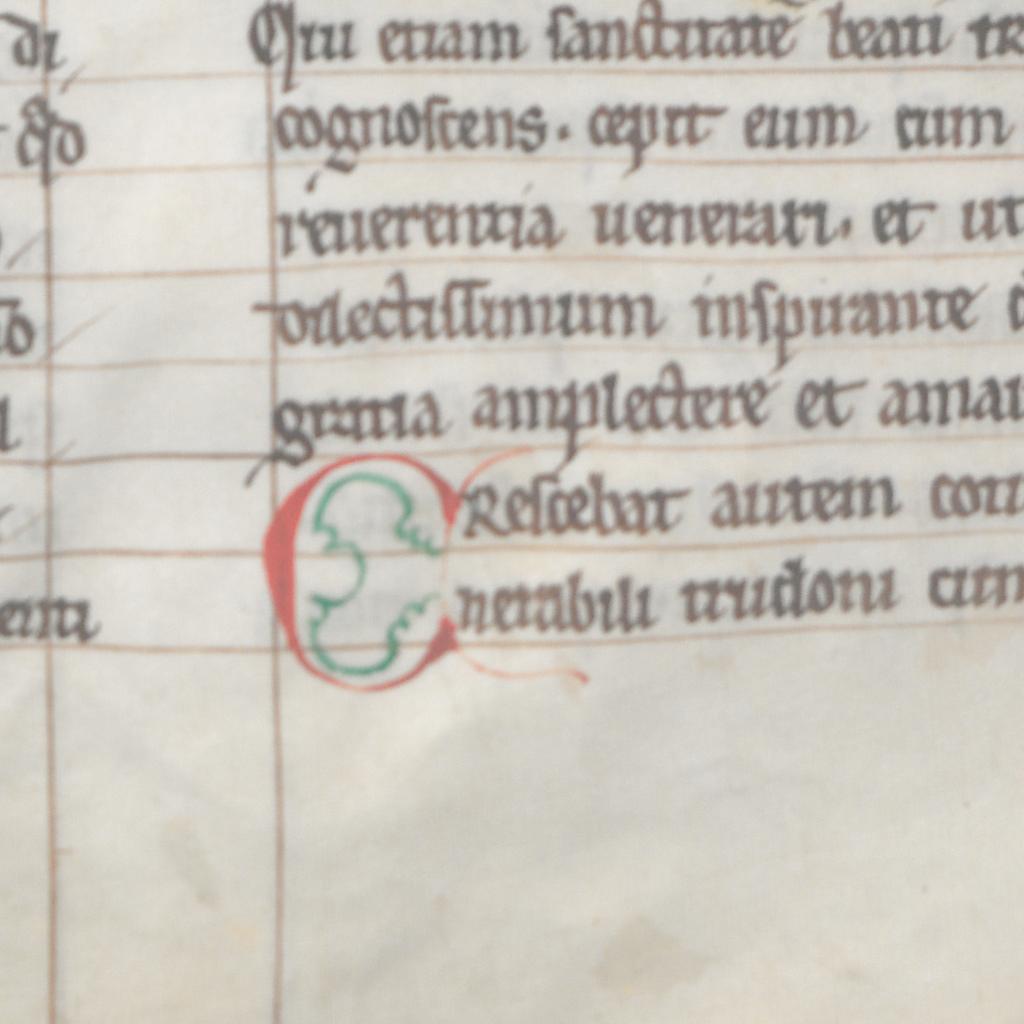 di
qd
Qui etiam sanctitatē beati
cognoscens. cepit eum cum
reuerentia uenerari. et ut
dilectissimum inspirante
gratia amplectere et
CRescebat autem
nerabili trudoni cum